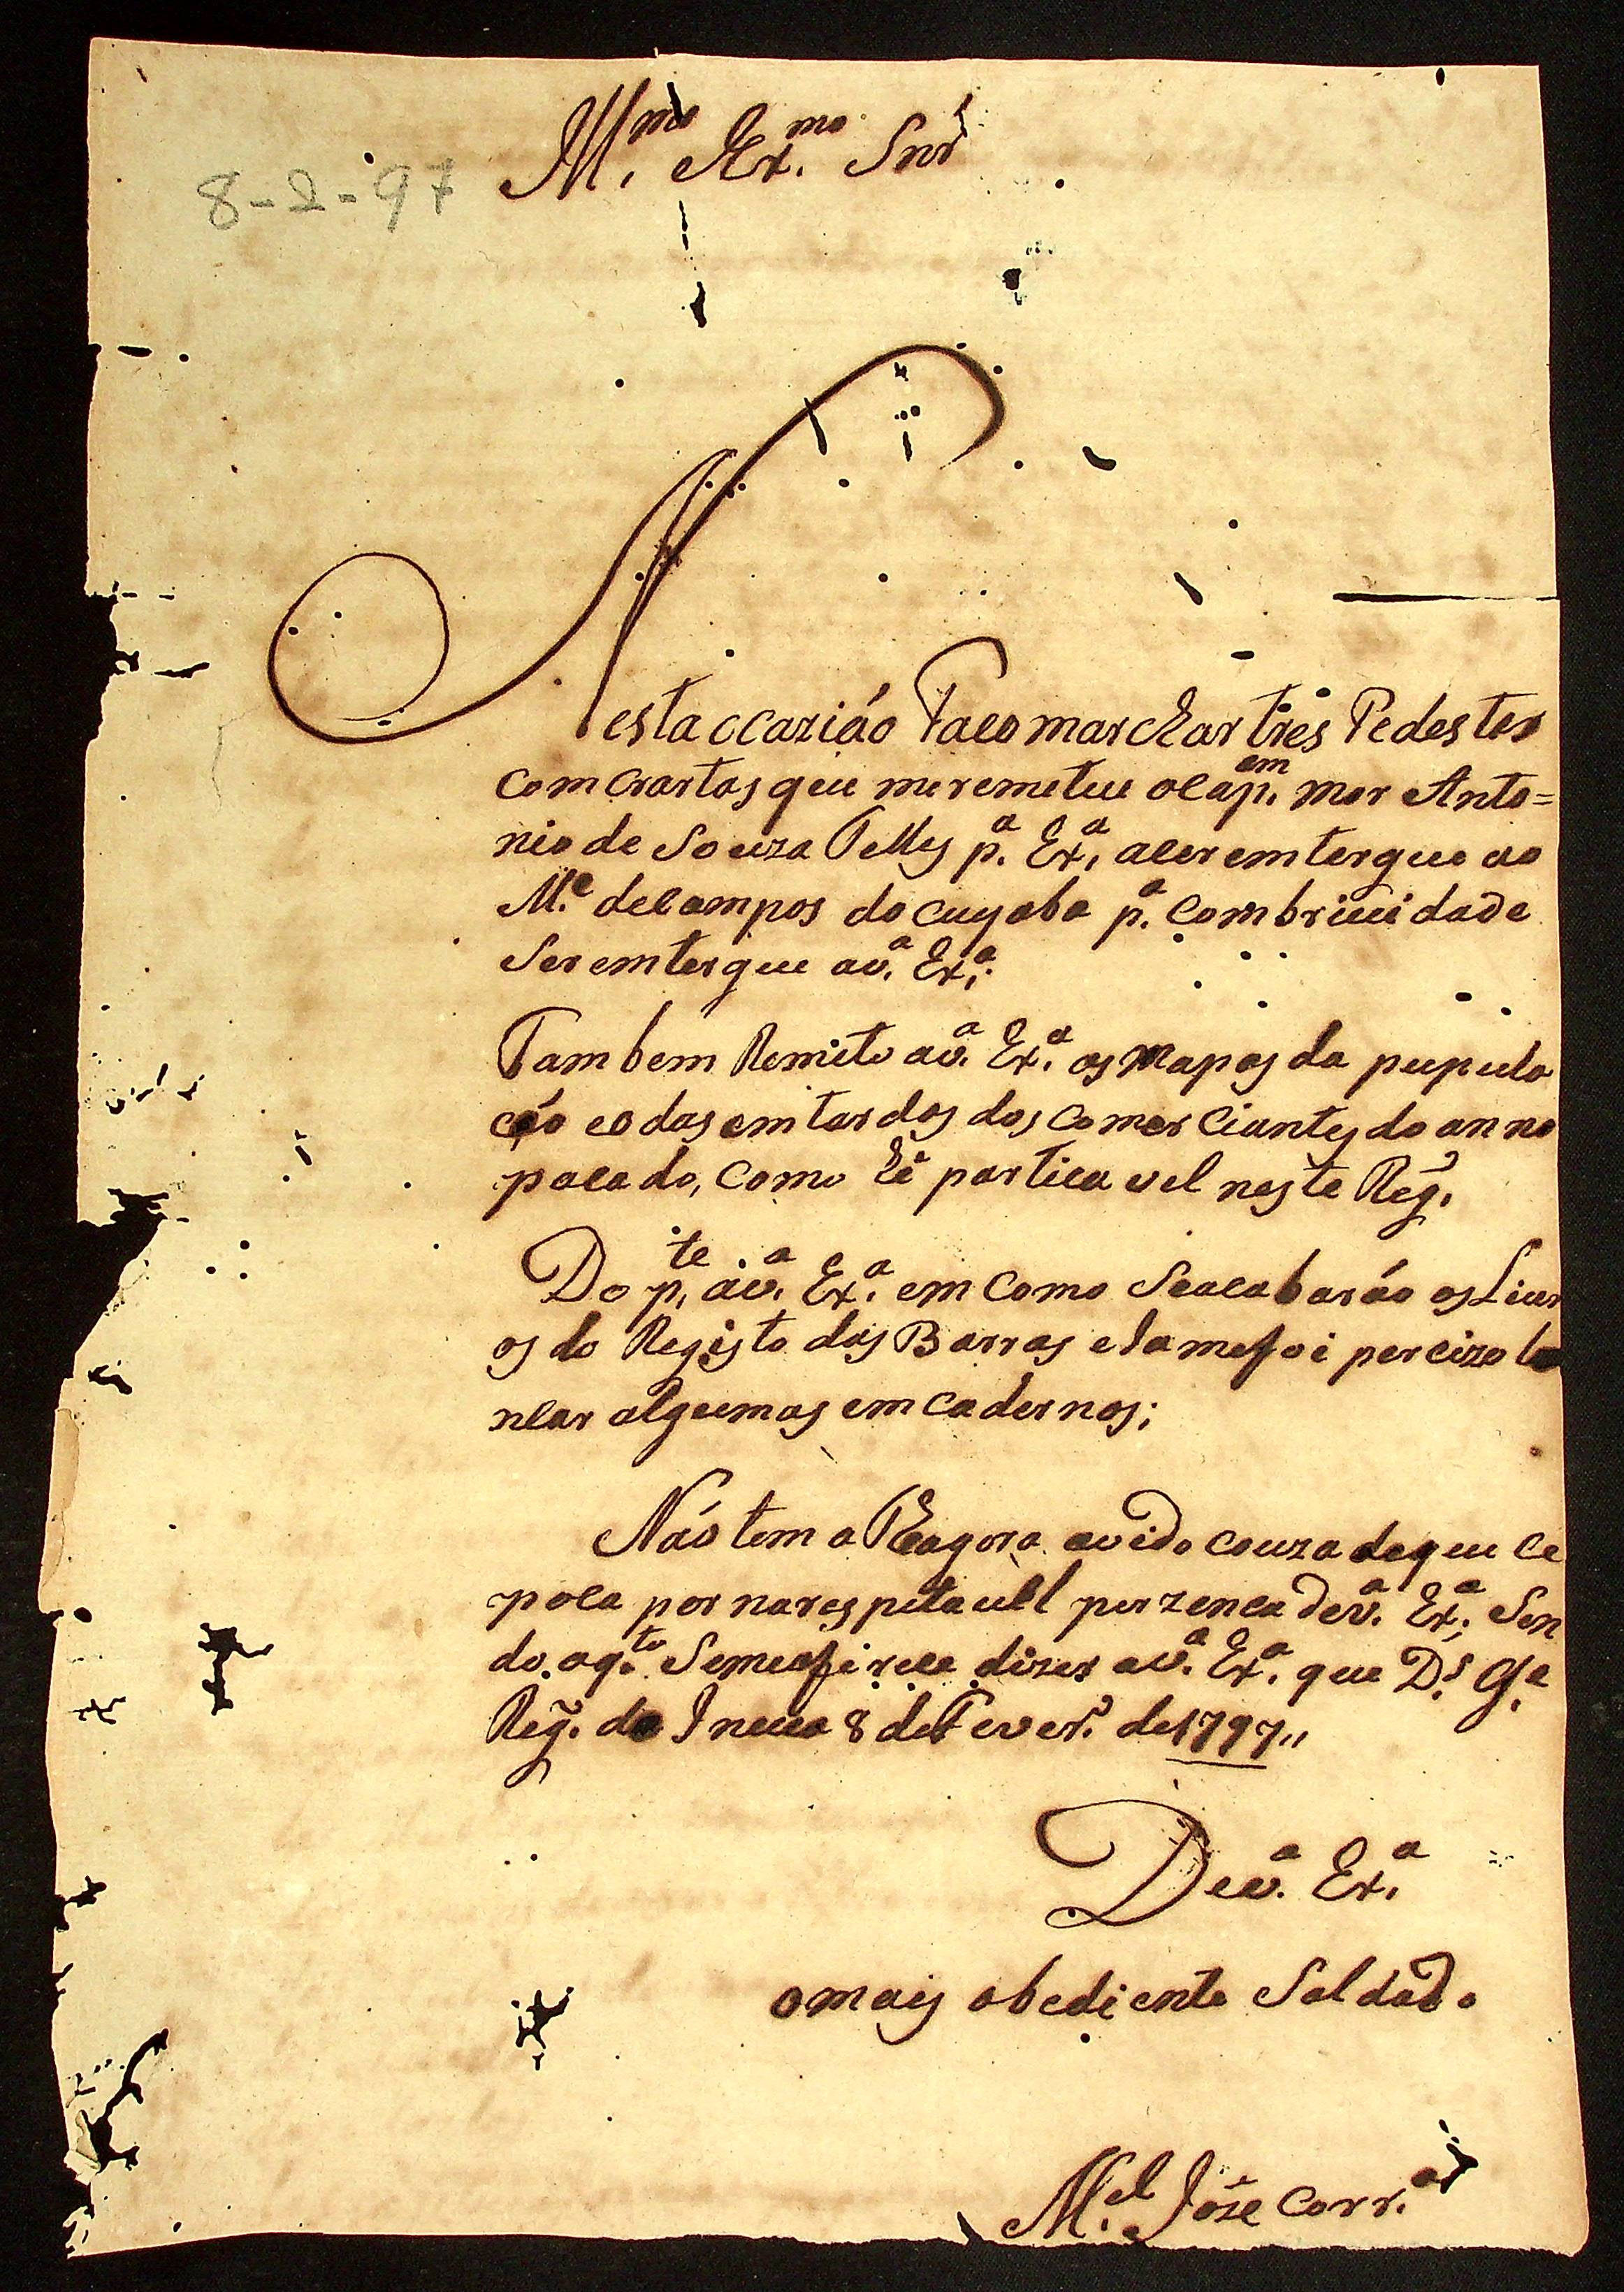 Ill.mo Ex.mo Snr
8-2-97
Nesta ccazião Faco marchar tres Pedestes
com Cartas que me remeteu o Cap.em mor Anto=
nio de Souza Telles p.a Ex.a a cer emtergue ao
M.e de Campos do cuyaba p.a com briuidade
Ser emtergue a v.a Ex.a
Tambem Remeto a v.a Ex.a os mapas da pupula
cão e o das emtardas dos comerciantes do anno
pacado, como hé particavel neste Reg.o
Do p.te a v.a Ex.a em como Se acabarão os Liur
os do Registo das Barras e Ja me foi percizo la
ncar algumas em cadernos;
Não tem athe agora avido couza de que ce
poca por na respitauel perzenca de v.a Ex.a; Sen
do. o q.to Se me ofirece dizer a v.a Ex.a que D.s g.e
Reg.o do Incua 8 de Fever.o de 1797,,
De v.a Ex.a
o mais obediente Soldado
M.el Jose Corr.a